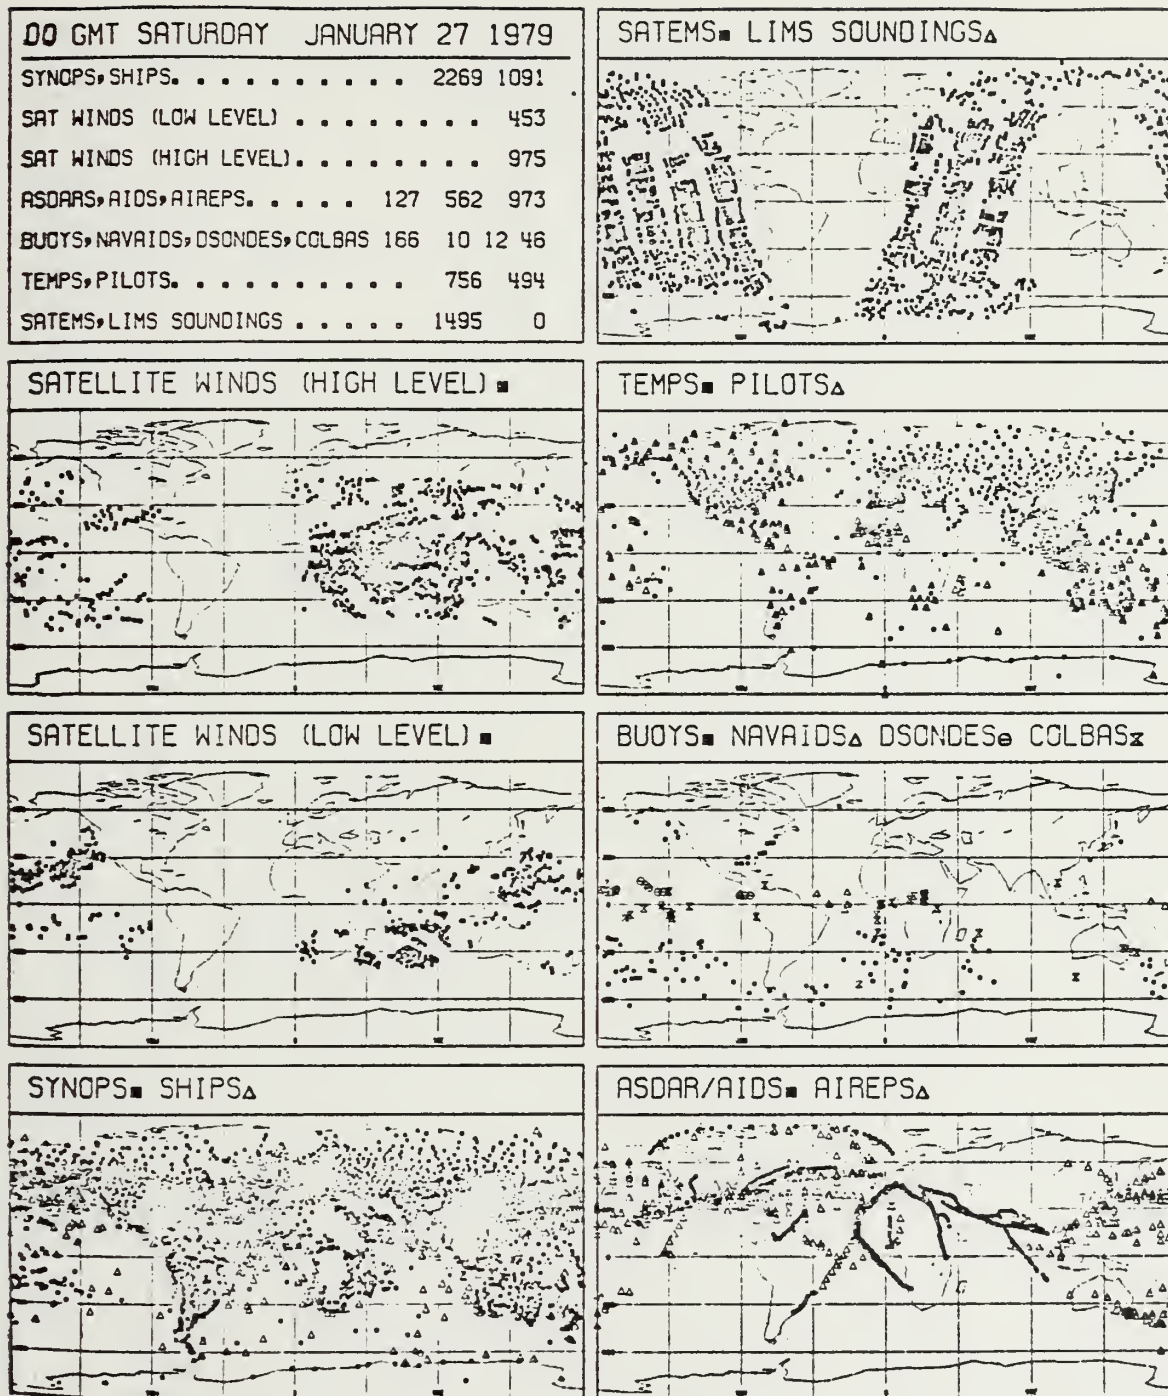 00 GMT SATURDAY JANUARY 27 1979
SYNOPS,SHIPS. . . . . . . . . . 2269 1091
SAT WINDS (LOW LEVEL) . . . . . . . . 453
SAT WINDS (HIGH LEVEL). . . . . . . . 975
ASDARS,AIDS,AIREPS. . . . . 127 562 973
BUOYS,NAVAIDS,DSONDES,COLBAS 166 10 12 46
TEMPS,PILOTS. . . . . . . . . . 756 494
SATEMS,LIMS SOUNDINGS . . . . . 1495 0
SATEMS■ LIMS SOUNDINGS△
SATELLITE WINDS (HIGH LEVEL)■
TEMPS■ PILOTS△
SATELLITE WINDS (LOW LEVEL)■
BUOYS■ NAVAIDS△ DSONDES⊖ COLBAS⧖
SYNOPS■ SHIPS△
ASDAR/AIDS■ AIREPS△